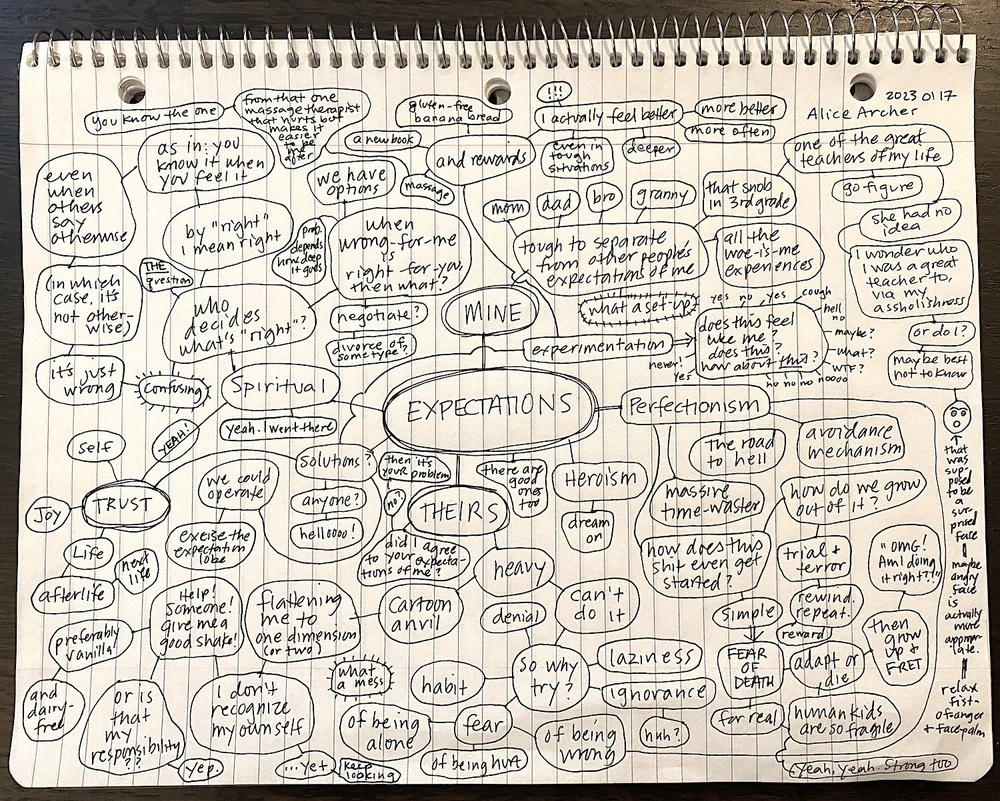 2023 01 17
Alice Archer
you know the one
from that one
massage therapist
that hurts but
makes it
easier
to be
me
after
gluten-free
banana bread
!!!
I actually feel better
more better
more often
even in
tough
situations
deeper
a new book
and rewards
massage
we have
options
as in: you
know it when
you feel it
even
when
others
say
otherwise
(in which
case, it's
not other-
wise)
it's just
wrong
by "right"
I mean right
THE
question
prob.
depends
how deep
it goes
when
wrong-for-me
is
right-for-you,
then what?
who
decides
what's "right"?
negotiate?
divorce of
some type?
mom
dad
bro
granny
that snob
in 3rd grade
one of the great
teachers of my life
go figure
she had no
idea
I wonder who
I was a great
teacher to,
via my
assholishness
or do I?
maybe best
not to know
tough to separate
from other people's
expectations of me
all the
woe-is-me
experiences
what a set-up
MINE
experimentation
does this feel
like me?
does this?
how about this?
yes no yes cough
hell
no
maybe?
what?
WTF?
no no no noooo
never!
yes
EXPECTATIONS
Spiritual
confusing
YEAH!
yeah. I went there
TRUST
self
Joy
Life
next
life
afterlife
preferably
vanilla!
and
dairy-
free
solutions?
anyone?
helloooo!
we could
operate
excise the
expectation
lobe
Help!
Someone!
give me a
good shake!
or is
that
my
responsibility
??
yep.
THEIRS
then it's
your problem
no?
did I agree
to your expecta-
tions of me?
there are
good
ones
too
Heroism
dream
on
heavy
cartoon
anvil
flattening
me to
one dimension
(or two)
I don't
recognize
my ownself
...yet
keep
looking
what
a mess
can't
do it
denial
so why
try?
laziness
ignorance
huh?
habit
fear
of being
alone
of being hurt
of being
wrong
Perfectionism
The road
to hell
avoidance
mechanism
massive
time-waster
how does this
shit even get
started?
simple
FEAR
OF
DEATH
for real
how do we grow
out of it?
trial +
terror
rewind.
repeat.
reward
adapt or
die
human kids
are so fragile
yeah, yeah. Strong too
then
grow
up +
FRET
"OMG!
Am I doing
it right??!"
that
was
sup-
posed
to be
a
sur-
prised
face
maybe
angry
face
is
actually
more
approp-
riate.
relax
fist-
of-anger
+ face-palm